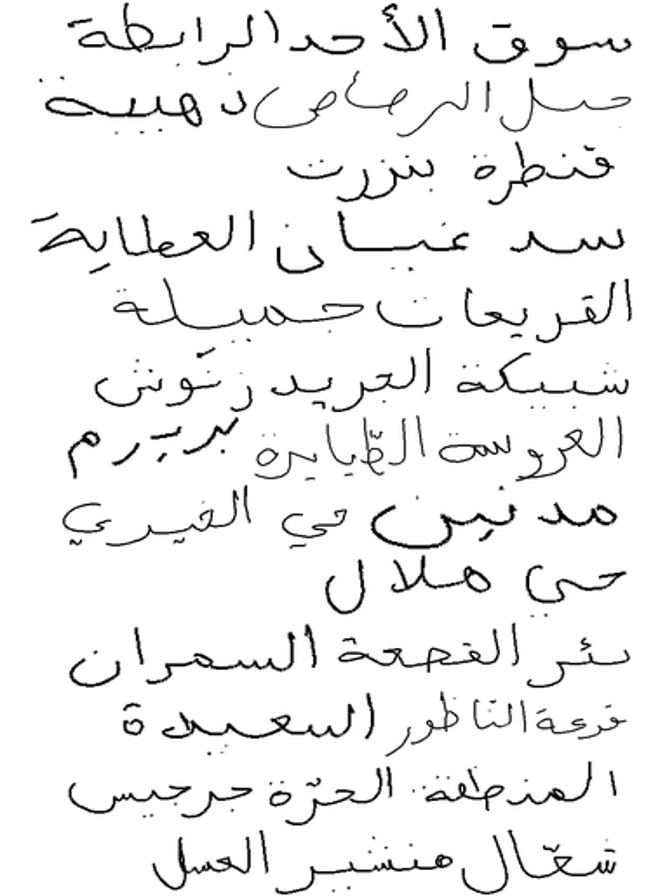 سوق الأحد الرابطة
جبل الرصاص ذهيبة
قنطرة بنزرت
سد غيسان العطاية
القريعات جميلة
شبيكة الجريد زنّوش
العروسة الطّيايرة بريرم
مدنين حي الخيري
حي هلال
بئر القصعة السمران
قرعة النّاظور السعيدة
المنطقة الحرّة جرجيس
شعّال هنشير العسل